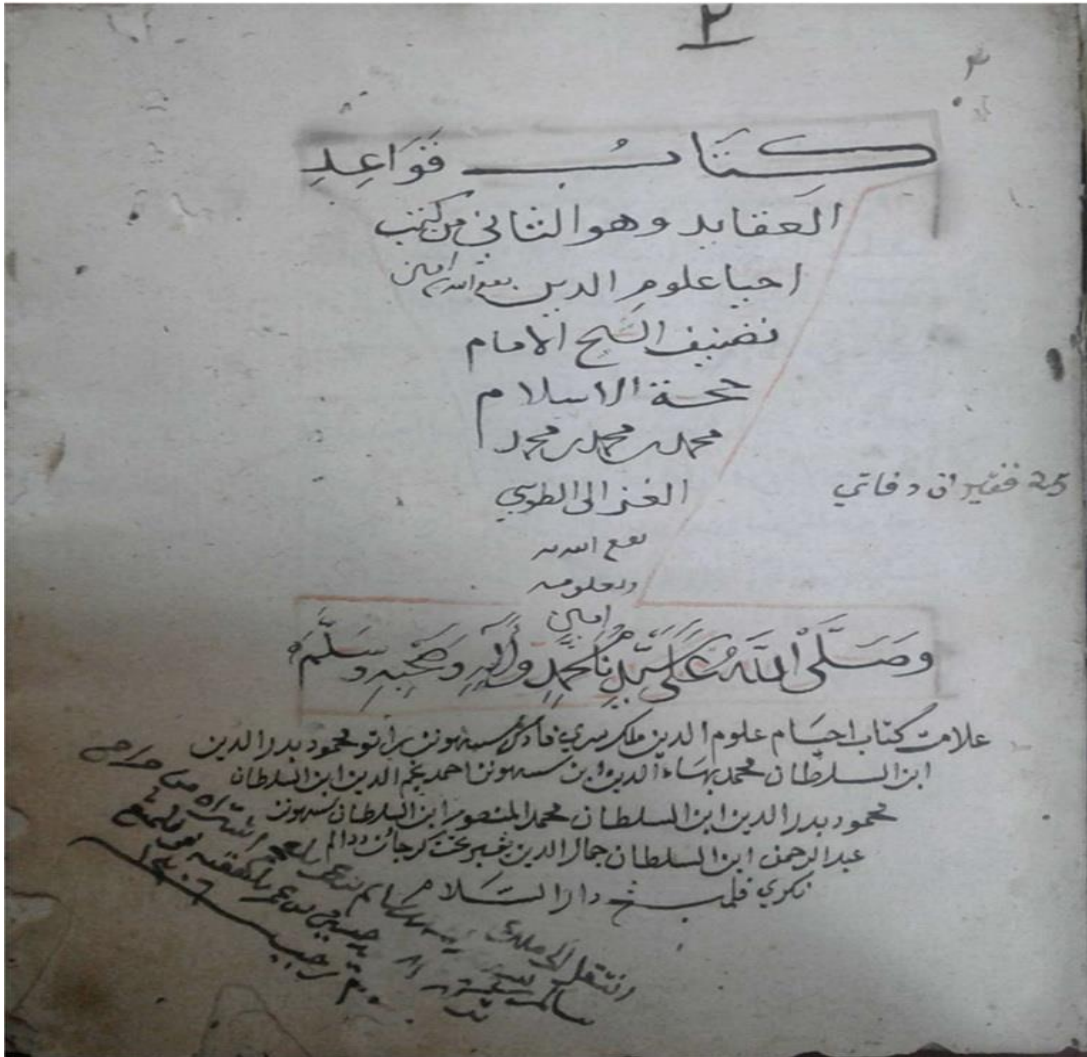 ٢
٢
كتابُ قَوَاعِدِ
العقايد وهو الثاني من كتب
احيا علوم الدين نفع الله امين
تصنيف الشيخ الامام
حجة الاسلام
محمد بن محمد بن محمد
الغزالى الطوسي
25 فقيران دفاتي
نفع الله به
وبعلومه
امين
وَصَلَّى اللهُ عَلَى سَيِّدِنَا مُحَمَّدٍ وَأَلِهِ وَصَحْبِهِ وَسَلَّمَ
علامت كتاب احياء علوم الدين ملك سري فادك سسوهونن راتو محمود بدر الدين
ابن السلطان محمد بهاء الدين ابن سسوهونن احمد نجم الدين ابن السلطان
محمود بدر الدين ابن السلطان محمد المنصور ابن السلطان سسوهونن
عبد الرحمن ابن السلطان جمال الدين يغبرتخت كرجائن ددالم
نكري فلمبڠ دار السلام
انتقل الى ملك
رجب سنة ١٣٠٦